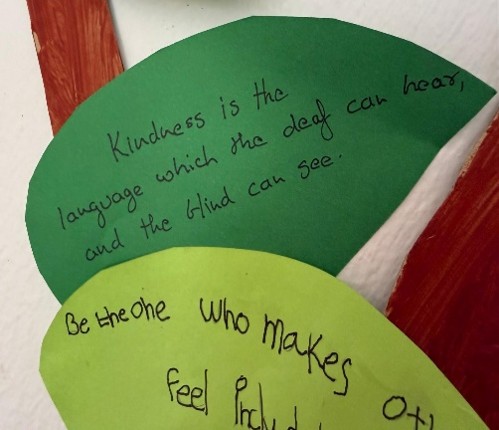 Kindness is the
language which the deaf can hear,
and the blind can see.
Be the one who makes
feel